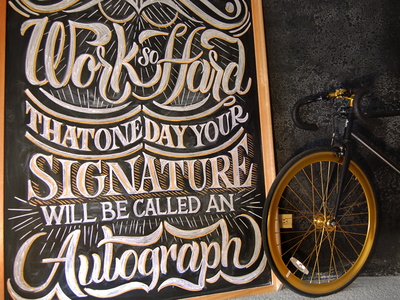 Work so Hard
THAT ONE DAY YOUR
SIGNATURE
WILL BE CALLED AN
Autograph